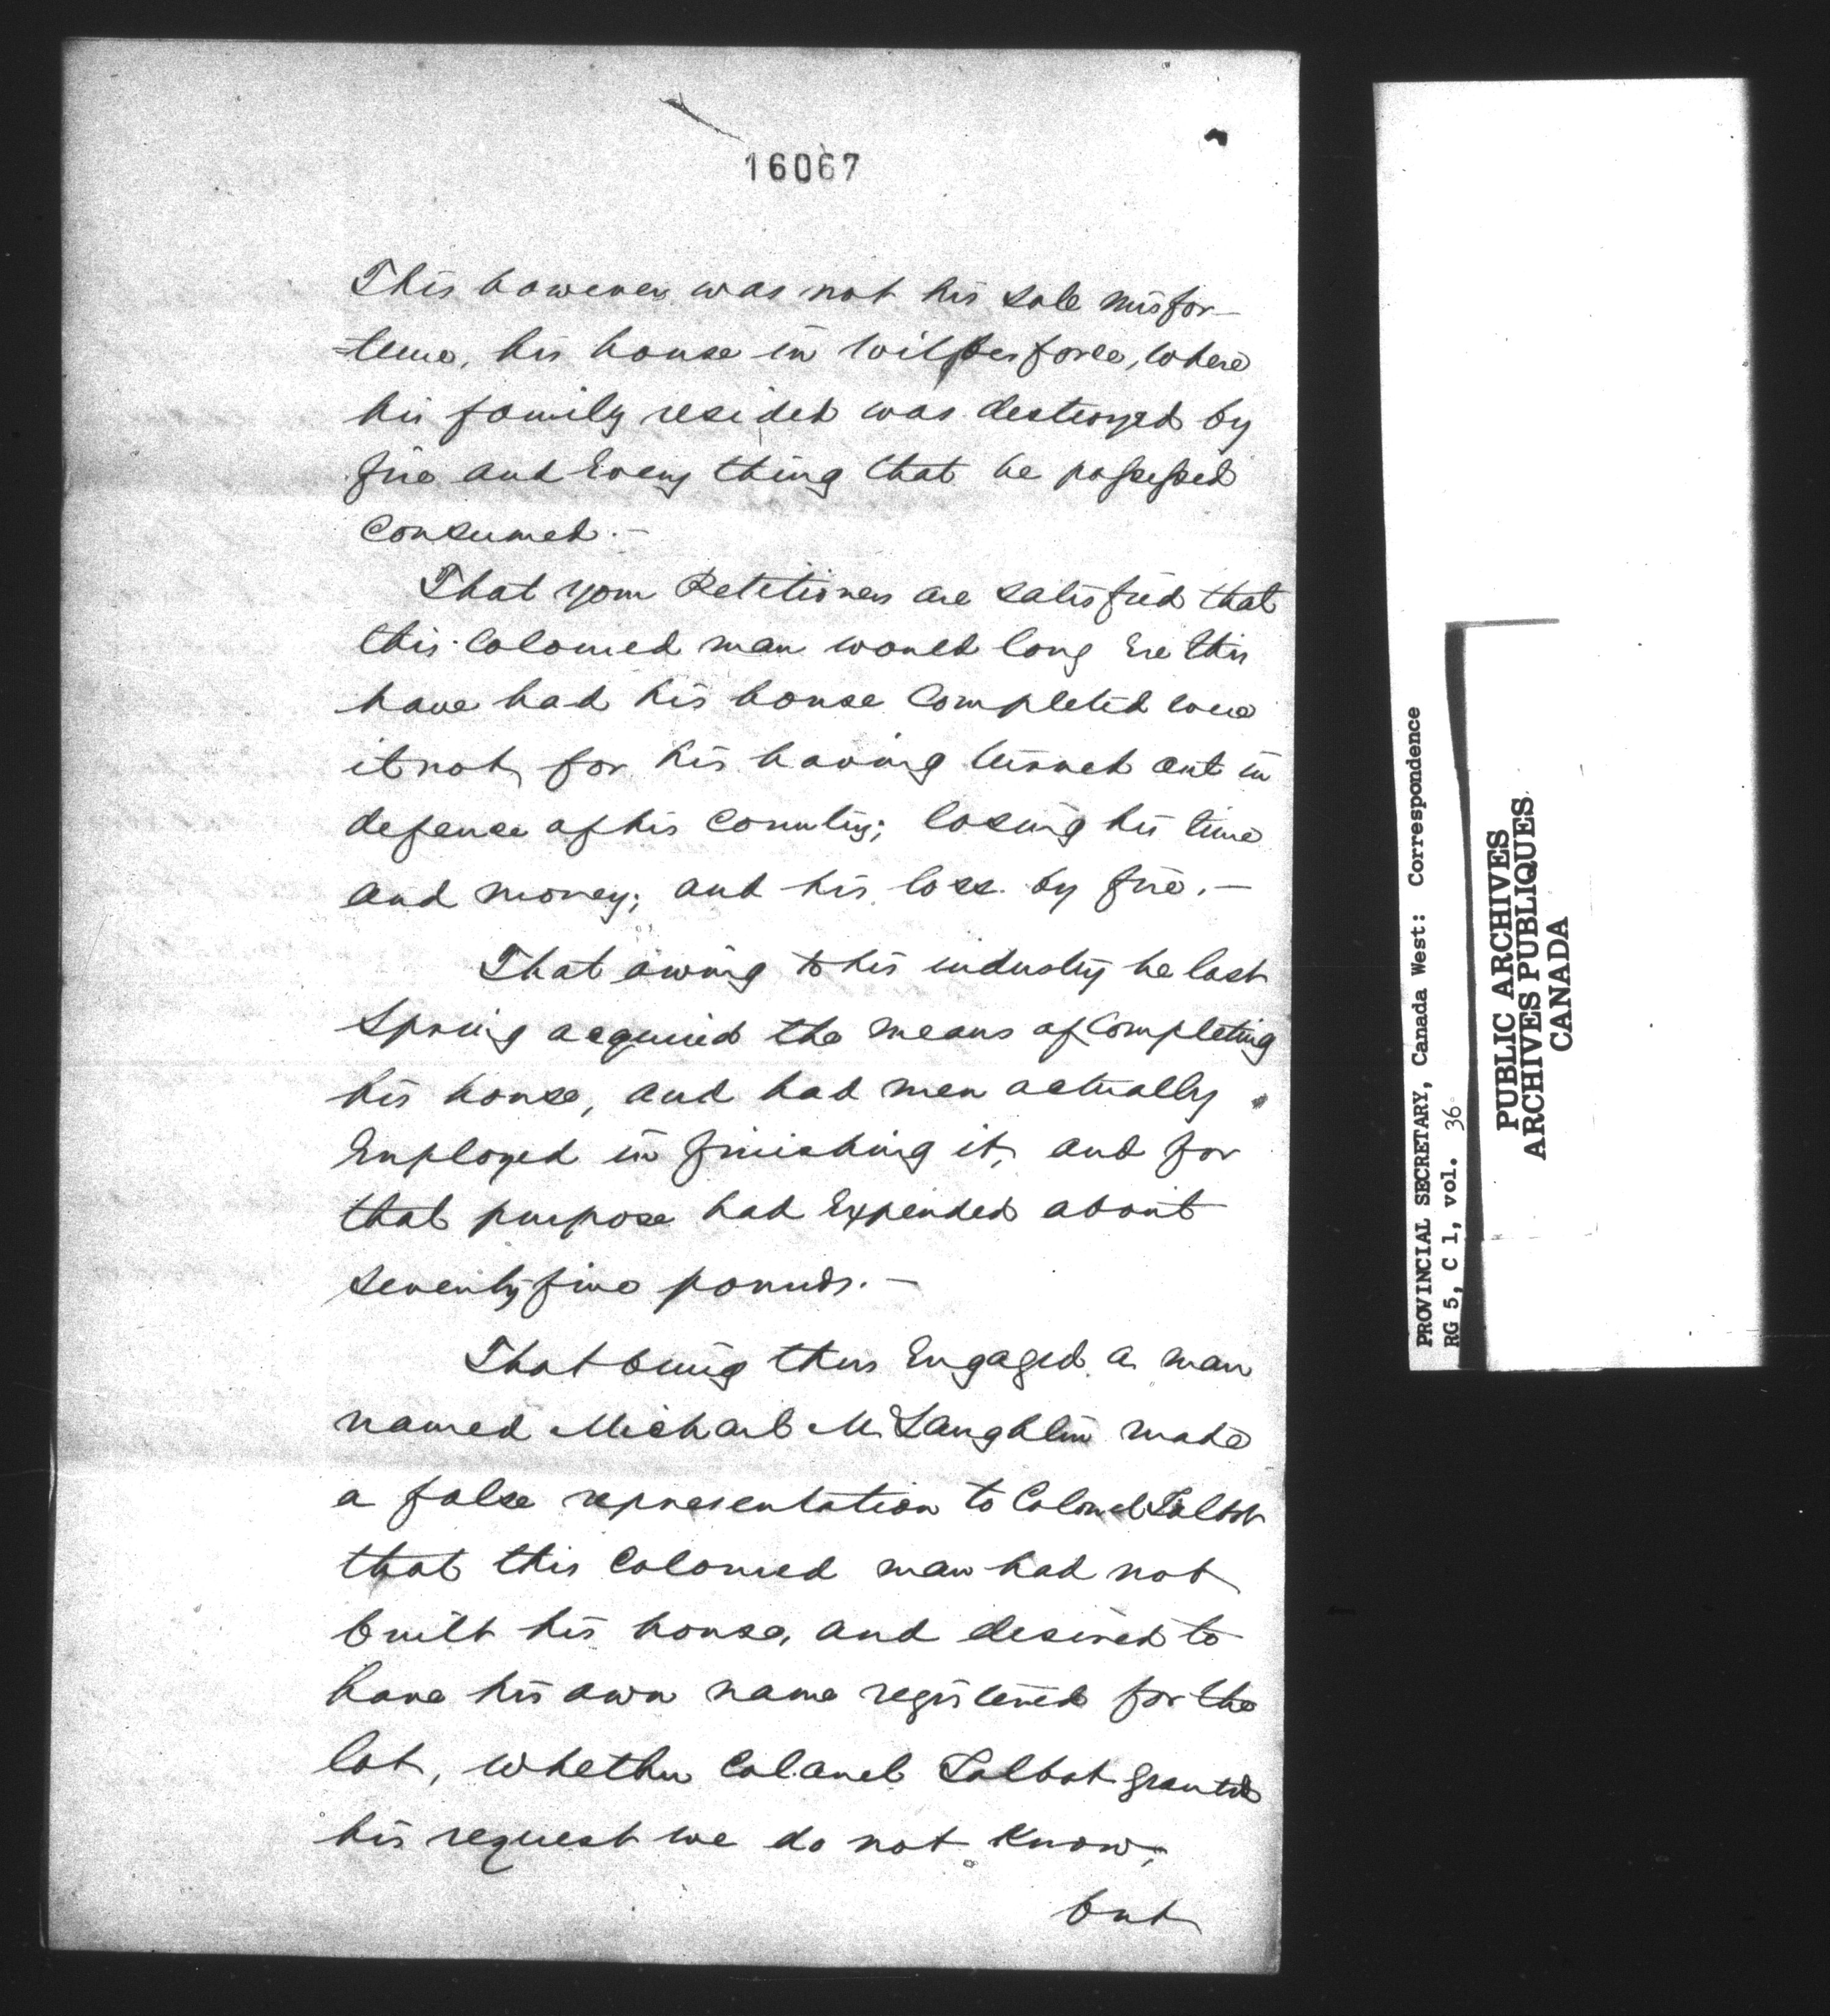 16067
This however was not his sole misfor-
=tune, his house in Wilberforce, where
his family resided was destroyed by
fire and Every thing that he possessed
Consumed.—
That your Petitioners are satisfied that
this Coloured man would long Ere this
have had his house Completed were
it not, for his having turned out in
defence of his Country; losing his time
and money; and his loss by fire.—
That owing to his industry he last
Spring acquired the means of Completing
his house, and had men actually
Employed in finishing it, and for
that purpose had Expended about
seventy five pounds.—
That being thus Engaged a man
named Michael McLaughlin made
a false representation to Colonel Talbot
that this Coloured man had not
built his house, and desired to
have his own name registered for the
lot, whether Colonel Talbot granted
his request we do not Know,
but
PROVINCIAL SECRETARY, Canada West: Correspondence
RG 5, C 1, vol. 36
PUBLIC ARCHIVES
ARCHIVES PUBLIQUES
CANADA